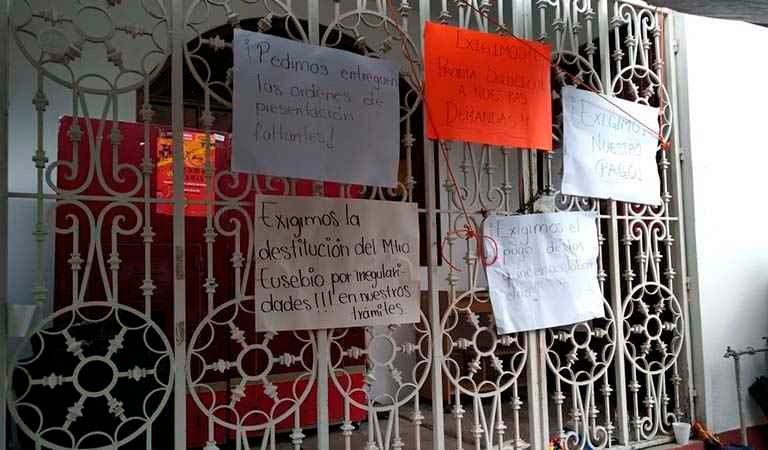 ¡Pedimos entreguen
las ordenes de
presentación
faltantes!
EXIGIMOS
PRONTA
A NUESTRAS
DEMANDAS
¡EXIGIMOS
NUESTRO
PAGO!
Exigimos la
destitución del Mtro
Eusebio por irregulari-
dades!!! en nuestros
trámites
¡Exigimos el
pago de las
quincenas